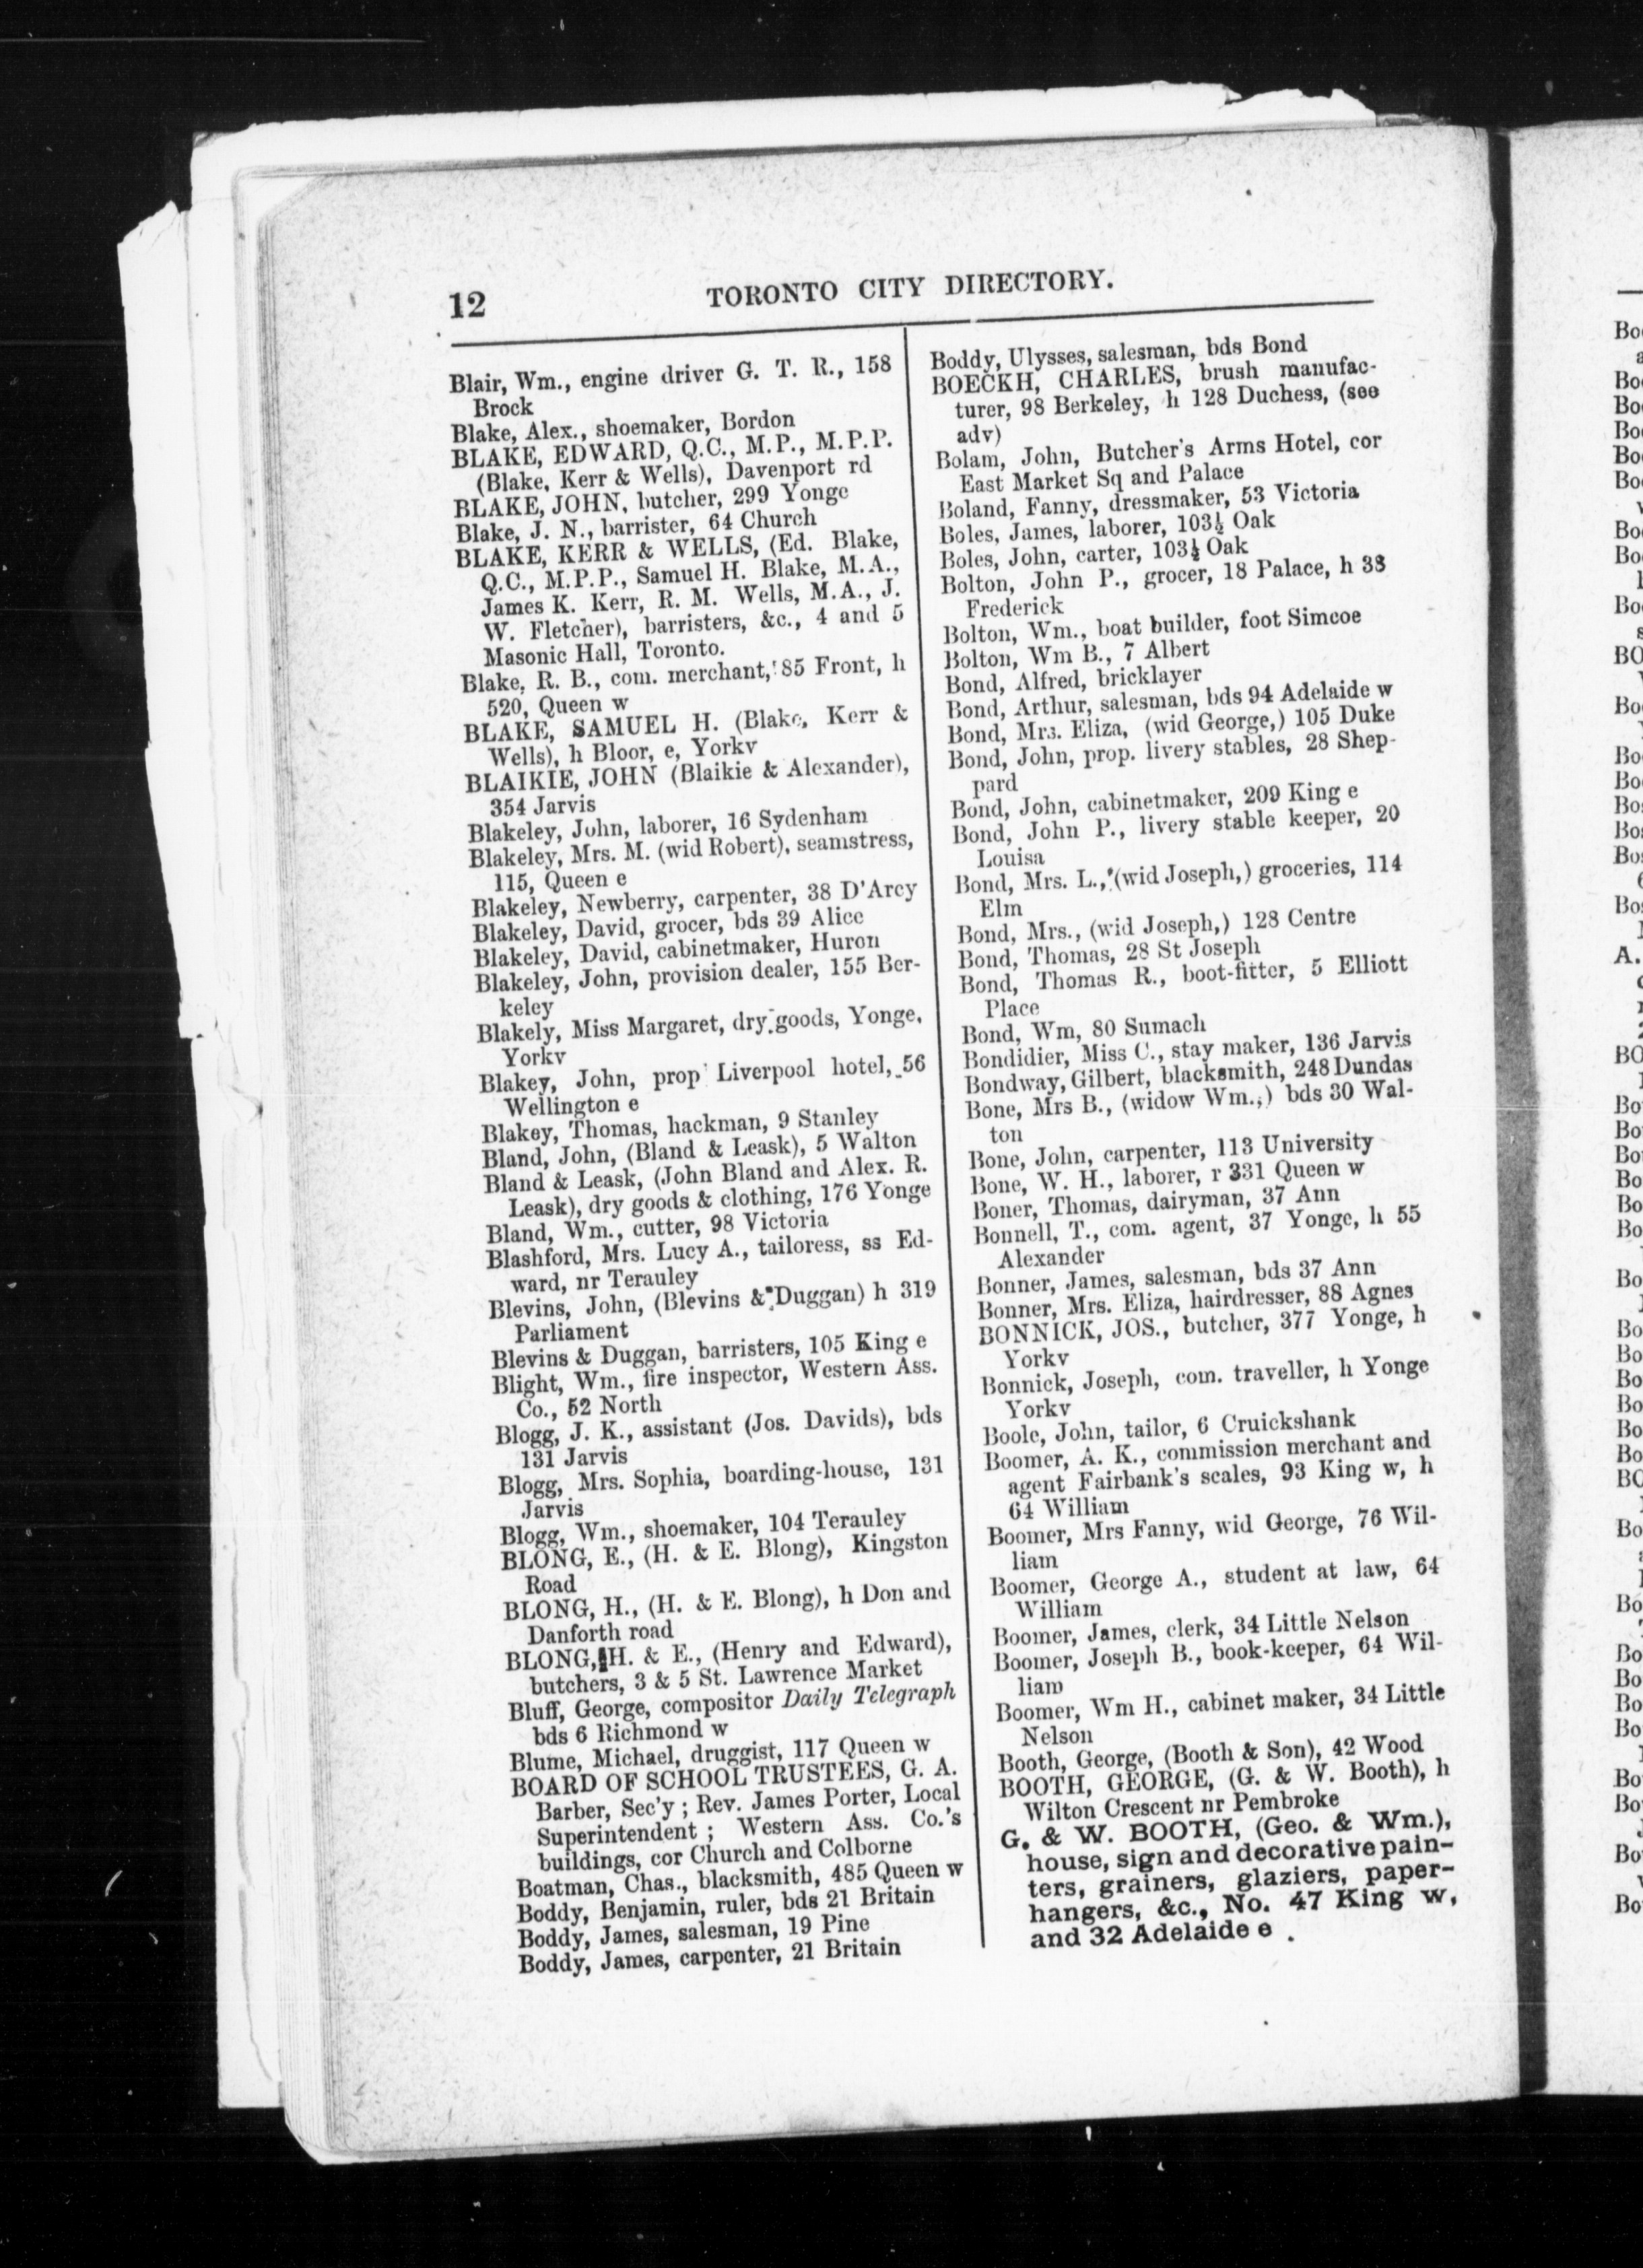 12
TORONTO CITY DIRECTORY.
Blair, Wm., engine driver G. T. R., 158
Brock
Blake, Alex., shoemaker, Bordon
BLAKE, EDWARD, Q.C., M.P., M.P.P.
(Blake, Kerr & Wells), Davenport rd
BLAKE, JOHN, butcher, 299 Yonge
Blake, J. N., barrister, 64 Church
BLAKE, KERR & WELLS, (Ed. Blake,
Q.C., M.P.P., Samuel H. Blake, M.A.,
James K. Kerr, R. M. Wells, M.A., J.
W. Fletcher), barristers, &c., 4 and 5
Masonic Hall, Toronto.
Blake, R. B., com. merchant, 85 Front, h
520, Queen w
BLAKE, SAMUEL H. (Blake, Kerr &
Wells), h Bloor, e, Yorkv
BLAIKIE, JOHN (Blaikie & Alexander),
354 Jarvis
Blakeley, John, laborer, 16 Sydenham
Blakeley, Mrs. M. (wid Robert), seamstress,
115, Queen e
Blakeley, Newberry, carpenter, 38 D'Arcy
Blakeley, David, grocer, bds 39 Alice
Blakeley, David, cabinetmaker, Huron
Blakeley, John, provision dealer, 155 Ber-
keley
Blakely, Miss Margaret, dry goods, Yonge,
Yorkv
Blakey, John, prop Liverpool hotel, 56
Wellington e
Blakey, Thomas, hackman, 9 Stanley
Bland, John, (Bland & Leask), 5 Walton
Bland & Leask, (John Bland and Alex. R.
Leask), dry goods & clothing, 176 Yonge
Bland, Wm., cutter, 98 Victoria
Blashford, Mrs. Lucy A., tailoress, ss Ed-
ward, nr Terauley
Blevins, John, (Blevins & Duggan) h 319
Parliament
Blevins & Duggan, barristers, 105 King e
Blight, Wm., fire inspector, Western Ass.
Co., 52 North
Blogg, J. K., assistant (Jos. Davids), bds
131 Jarvis
Blogg, Mrs. Sophia, boarding-house, 131
Jarvis
Blogg, Wm., shoemaker, 104 Terauley
BLONG, E., (H. & E. Blong), Kingston
Road
BLONG, H., (H. & E. Blong), h Don and
Danforth road
BLONG, H. & E., (Henry and Edward),
butchers, 3 & 5 St. Lawrence Market
Bluff, George, compositor Daily Telegraph
bds 6 Richmond w
Blume, Michael, druggist, 117 Queen w
BOARD OF SCHOOL TRUSTEES, G. A.
Barber, Sec'y ; Rev. James Porter, Local
Superintendent ; Western Ass. Co.'s
buildings, cor Church and Colborne
Boatman, Chas., blacksmith, 485 Queen w
Boddy, Benjamin, ruler, bds 21 Britain
Boddy, James, salesman, 19 Pine
Boddy, James, carpenter, 21 Britain
Boddy, Ulysses, salesman, bds Bond
BOECKH, CHARLES, brush manufac-
turer, 98 Berkeley, h 128 Duchess, (see
adv)
Bolam, John, Butcher's Arms Hotel, cor
East Market Sq and Palace
Boland, Fanny, dressmaker, 53 Victoria
Boles, James, laborer, 103½ Oak
Boles, John, carter, 103½ Oak
Bolton, John P., grocer, 18 Palace, h 38
Frederick
Bolton, Wm., boat builder, foot Simcoe
Bolton, Wm B., 7 Albert
Bond, Alfred, bricklayer
Bond, Arthur, salesman, bds 94 Adelaide w
Bond, Mrs. Eliza, (wid George,) 105 Duke
Bond, John, prop. livery stables, 28 Shep-
pard
Bond, John, cabinetmaker, 209 King e
Bond, John P., livery stable keeper, 20
Louisa
Bond, Mrs. L., (wid Joseph,) groceries, 114
Elm
Bond, Mrs., (wid Joseph,) 128 Centre
Bond, Thomas, 28 St Joseph
Bond, Thomas R., boot-fitter, 5 Elliott
Place
Bond, Wm, 80 Sumach
Bondidier, Miss C., stay maker, 136 Jarvis
Bondway, Gilbert, blacksmith, 248 Dundas
Bone, Mrs B., (widow Wm.,) bds 30 Wal-
ton
Bone, John, carpenter, 113 University
Bone, W. H., laborer, r 331 Queen w
Boner, Thomas, dairyman, 37 Ann
Bonnell, T., com. agent, 37 Yonge, h 55
Alexander
Bonner, James, salesman, bds 37 Ann
Bonner, Mrs. Eliza, hairdresser, 88 Agnes
BONNICK, JOS., butcher, 377 Yonge, h
Yorkv
Bonnick, Joseph, com. traveller, h Yonge
Yorkv
Boole, John, tailor, 6 Cruickshank
Boomer, A. K., commission merchant and
agent Fairbank's scales, 93 King w, h
64 William
Boomer, Mrs Fanny, wid George, 76 Wil-
liam
Boomer, George A., student at law, 64
William
Boomer, James, clerk, 34 Little Nelson
Boomer, Joseph B., book-keeper, 64 Wil-
liam
Boomer, Wm H., cabinet maker, 34 Little
Nelson
Booth, George, (Booth & Son), 42 Wood
BOOTH, GEORGE, (G. & W. Booth), h
Wilton Crescent nr Pembroke
G. & W. BOOTH, (Geo. & Wm.),
house, sign and decorative pain-
ters, grainers, glaziers, paper-
hangers, &c., No. 47 King w,
and 32 Adelaide e .